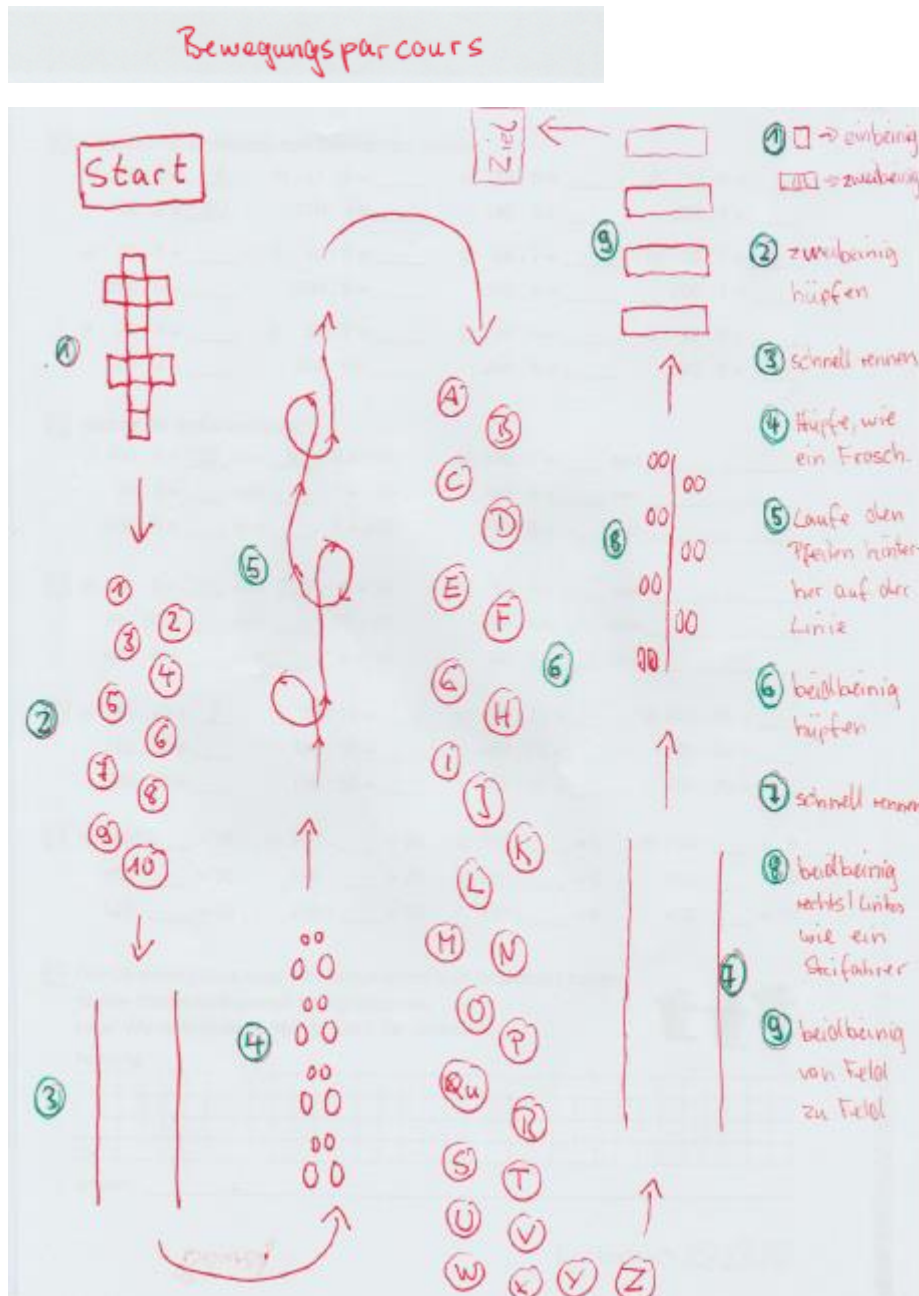 Bewegungsparcours
Start
Ziel
1
2
3
4
5
6
7
8
9
1
2
3
4
5
6
7
8
9
10
A
B
C
D
E
F
G
H
I
J
K
L
M
N
O
P
Qu
R
S
T
U
V
W
X
Y
Z
1 → einbeinig
→ zweibeinig
2 zweibeinig
hüpfen
3 schnell rennen
4 Hüpfe, wie
ein Frosch
5 Laufe den
Pfeilen hinter-
her auf der
Linie
6 beidbeinig
hüpfen
7 schnell rennen
8 beidbeinig
rechts/links
wie ein
Skifahrer
9 beidbeinig
von Feld
zu Feld